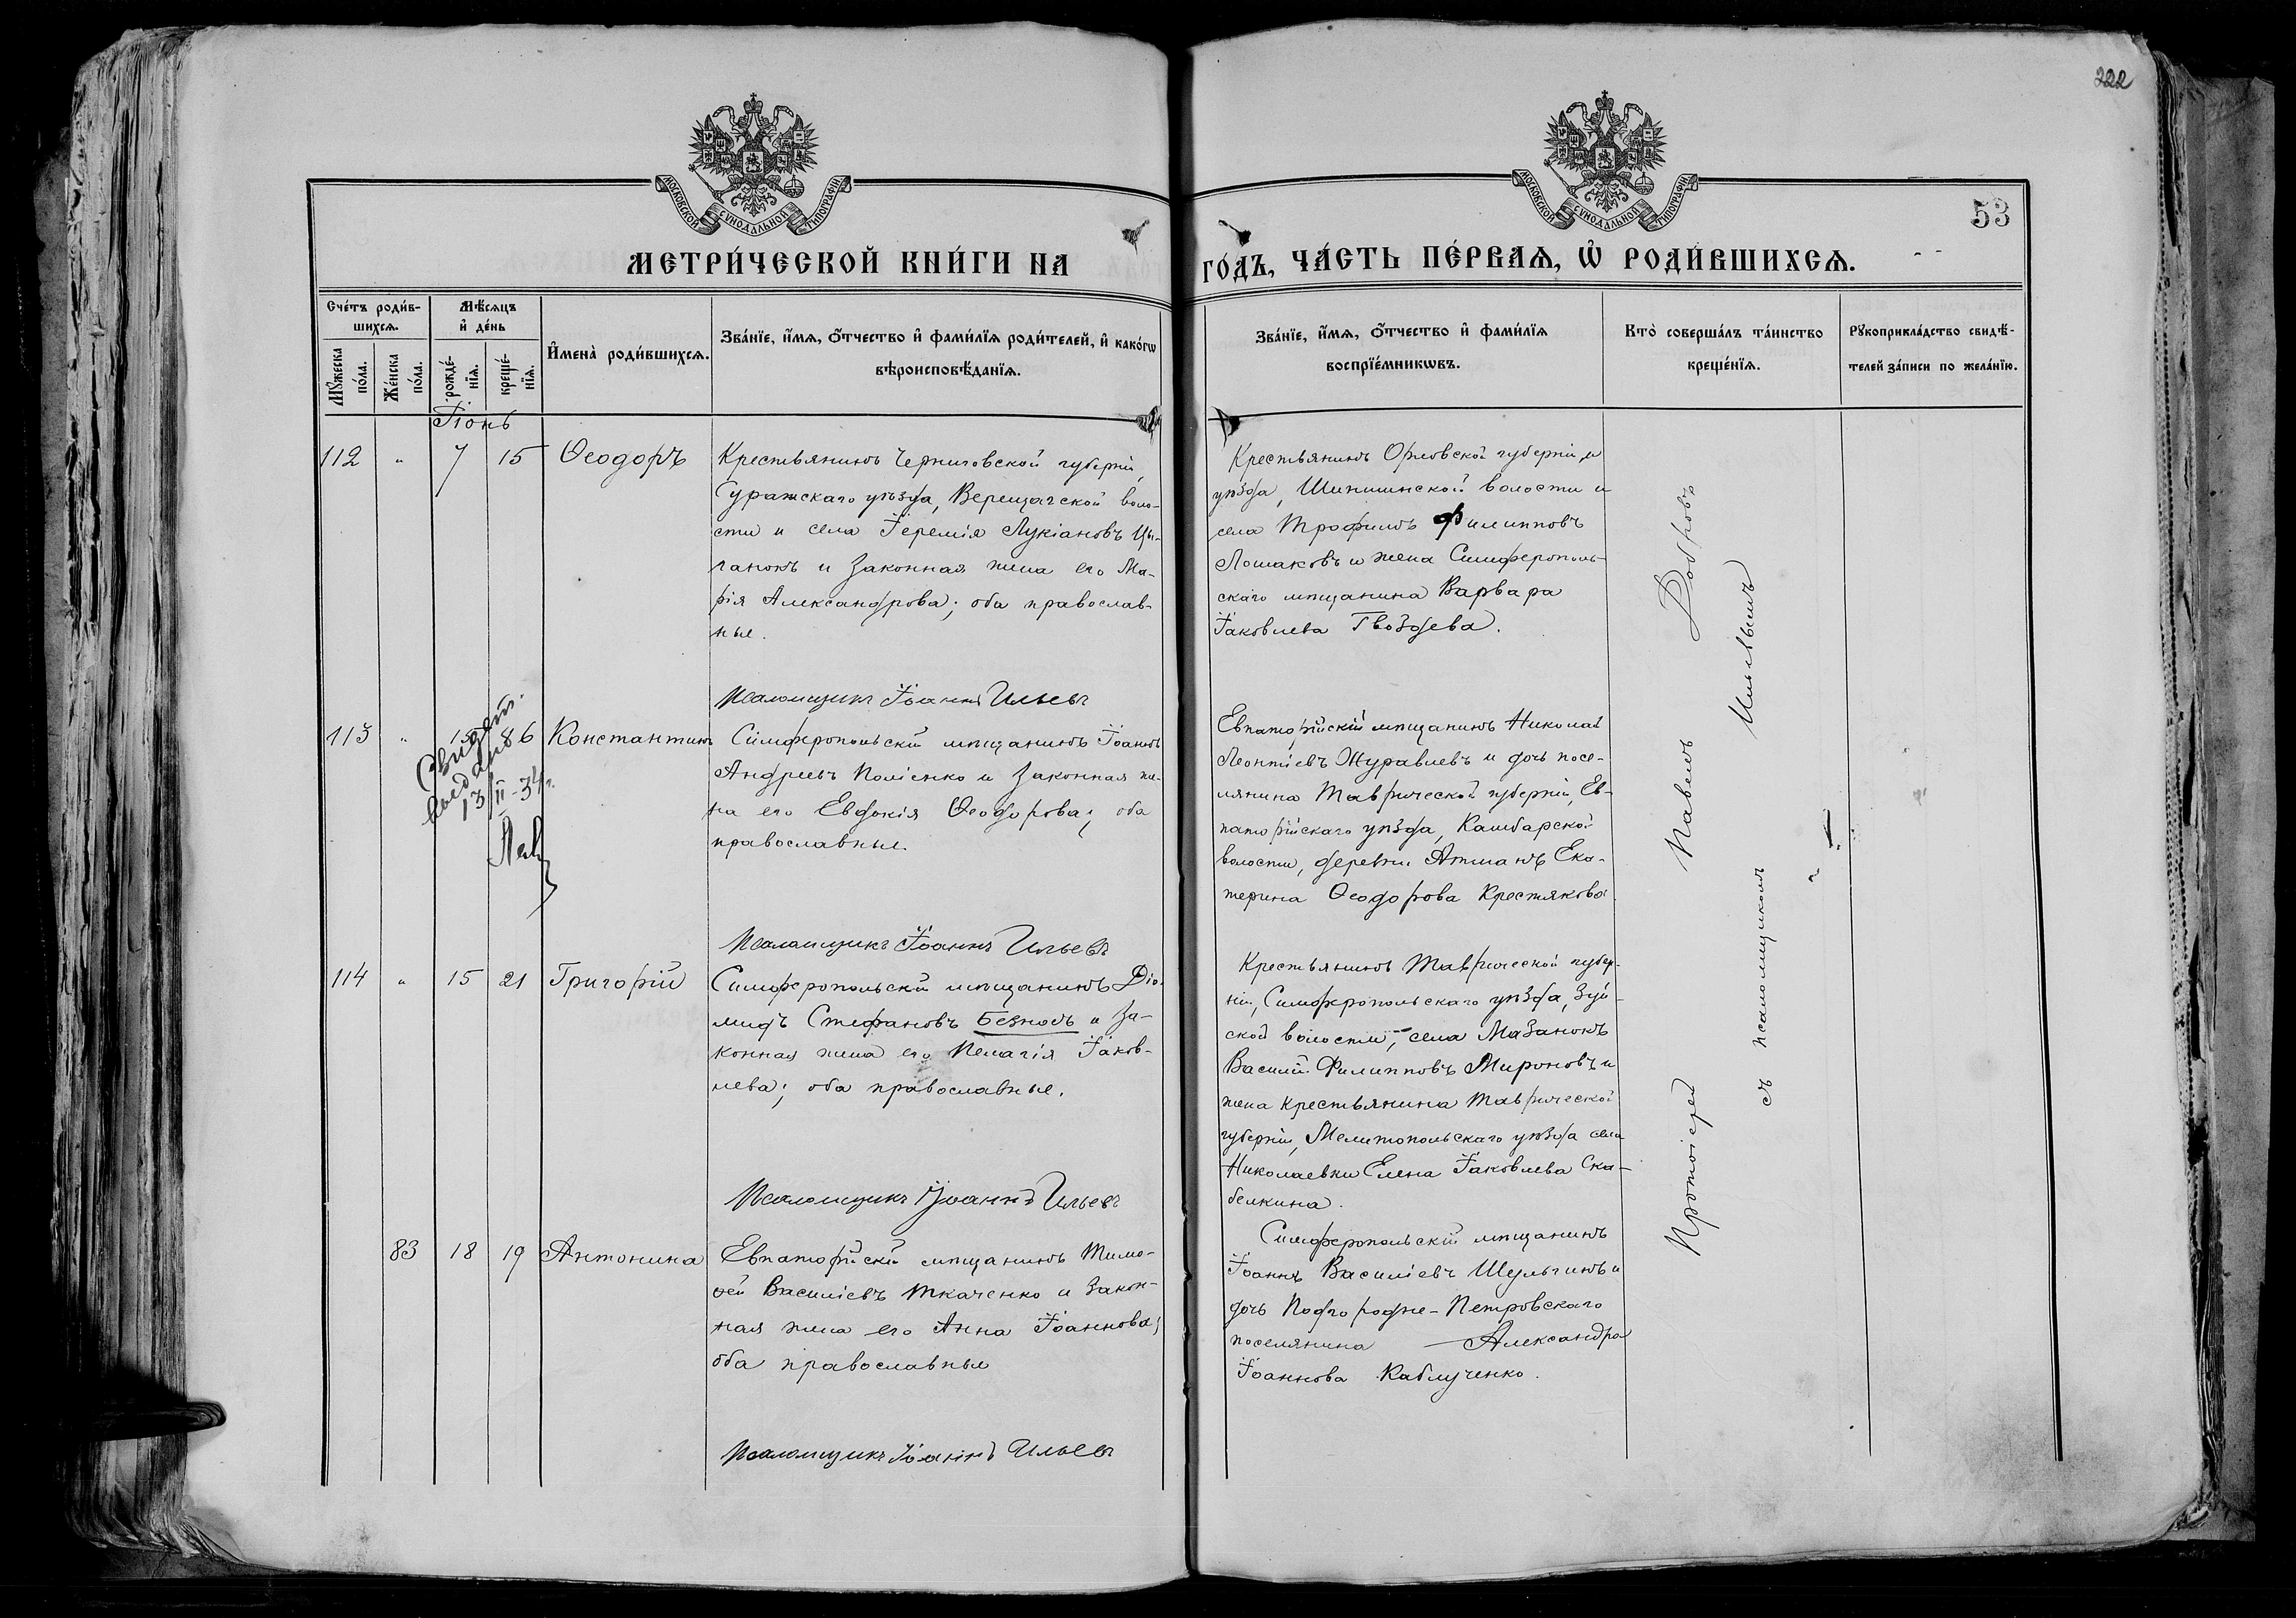 222
МОСКОВСКОЙ СѴНОДАЛЬНОЙ ТИПОГРАФІИ
МОСКОВСКОЙ СѴНОДАЛЬНОЙ ТИПОГРАФІИ
53
МЕТРИ́ЧЕСКОЙ КНИ́ГИ НА
ГО́ДЪ, ЧА́СТЬ ПЕ́РВАѦ, Ѽ РОДИ́ВШИХСѦ.
Сче́тъ роди́в-
шихсѧ.
Мꙋ́жеска по́ла.
Же́нска по́ла.
Мѣ́сѧцъ
и҆ де́нь
рожде́-
нїѧ.
креще́-
нїѧ.
И҆мена̀ роди́вшихсѧ.
Зва́нїе, и҆́мѧ, ѻ҆́тчество и҆ фами́лїѧ роди́телей, и҆ како́гѡ
вѣроисповѣ́данїѧ.
Зва́нїе, и҆́мѧ, ѻ҆́тчество и҆ фами́лїѧ
воспрїе́мникѡвъ.
Кто̀ соверша́лъ та́инство
креще́нїѧ.
Рꙋкоприкла́дство свидѣ́-
телей за́писи по жела́нїю.
Іюнь
112 " 7 15 Ѳеодоръ
Крестьянинъ Черниговской губерніи,
Суражскаго уѣзда, Верещагской воло-
сти и села Іеремія Лукіановъ Цы-
ганокъ и законная жена его Ма-
рія Александрова; оба православ-
ные.
Псаломщикъ Іоаннъ Ильевъ
Крестьянинъ Орловской губерніи и
уѣзда, Шипишинской волости и
села Трофимъ Филипповъ
Лошаковъ и жена Симферополь-
скаго мѣщанина Варвара
Іаковлева Гвоздева.
113 " Константинъ
Свидет.
выдано
13/II-34г.
Симферопольскій мѣщанинъ Іоаннъ
Андреевъ Поліенко и законная же-
на его Евдокія Ѳеодорова; оба
православные.
Псаломщикъ Іоаннъ Ильевъ
Евпаторійскій мѣщанинъ Николай
Леонтіевъ Журавлевъ и дочь посе-
лянина Таврической губерніи, Ев-
паторійскаго уѣзда, Камбарской
волости, деревни Атманъ Ека-
терина Ѳеодорова Крестякова.
114 " 15 21 Григорій
Симферопольскій мѣщанинъ Діо-
мидъ Стефановъ Безносъ и за-
конная жена его Пелагія Іаков-
лева; оба православные.
Псаломщикъ Іоаннъ Ильевъ
Крестьянинъ Таврической губер-
ніи, Симферопольскаго уѣзда, Зуй-
ской волости, села Мазанокъ
Василій Филипповъ Мироновъ и
жена крестьянина Таврической
губерніи, Мелитопольскаго уѣзда села
Николаевки Елена Іаковлева Ска-
белкина.
83 18 19 Антонина
Евпаторійскій мѣщанинъ Тимо-
ѳей Василіевъ Ткаченко и закон-
ная жена его Анна Іоаннова;
оба православные
Псаломщикъ Іоаннъ Ильевъ
Симферопольскій мѣщанинъ
Іоаннъ Василіевъ Шульгинъ и
дочь Подгородне-Петровскаго
поселянина — Александра
Іоаннова Каблученко.
Протоіерей Павелъ Добровъ
съ псаломщикомъ Ильевымъ